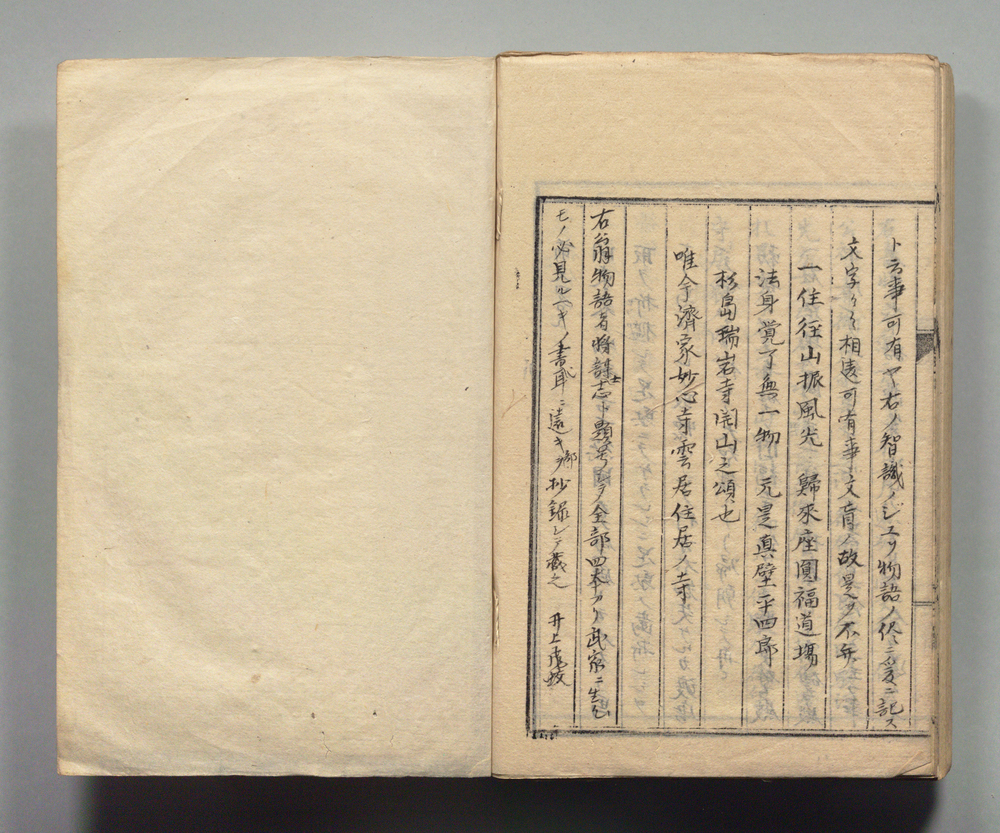 ト云事可有ヤ右ノ智識ノジユツ物語ノ侭ニ爰ニ記ス
文字ノ相遠可有事文盲人故是ヲ不弁
一住徑山振風光　歸來座圓福道場
法身覚了無一物　元是真壁平四郎
松島瑞岩寺開山之頌也
唯今濟家妙心寺雲居住居ノ寺
右翁物語者將謀志ト題号シテ全部四本アリ武家ニ生ル
モノ必見ルヘキノ書耳ニ遠キヲ抄録シテ蔵之　井上